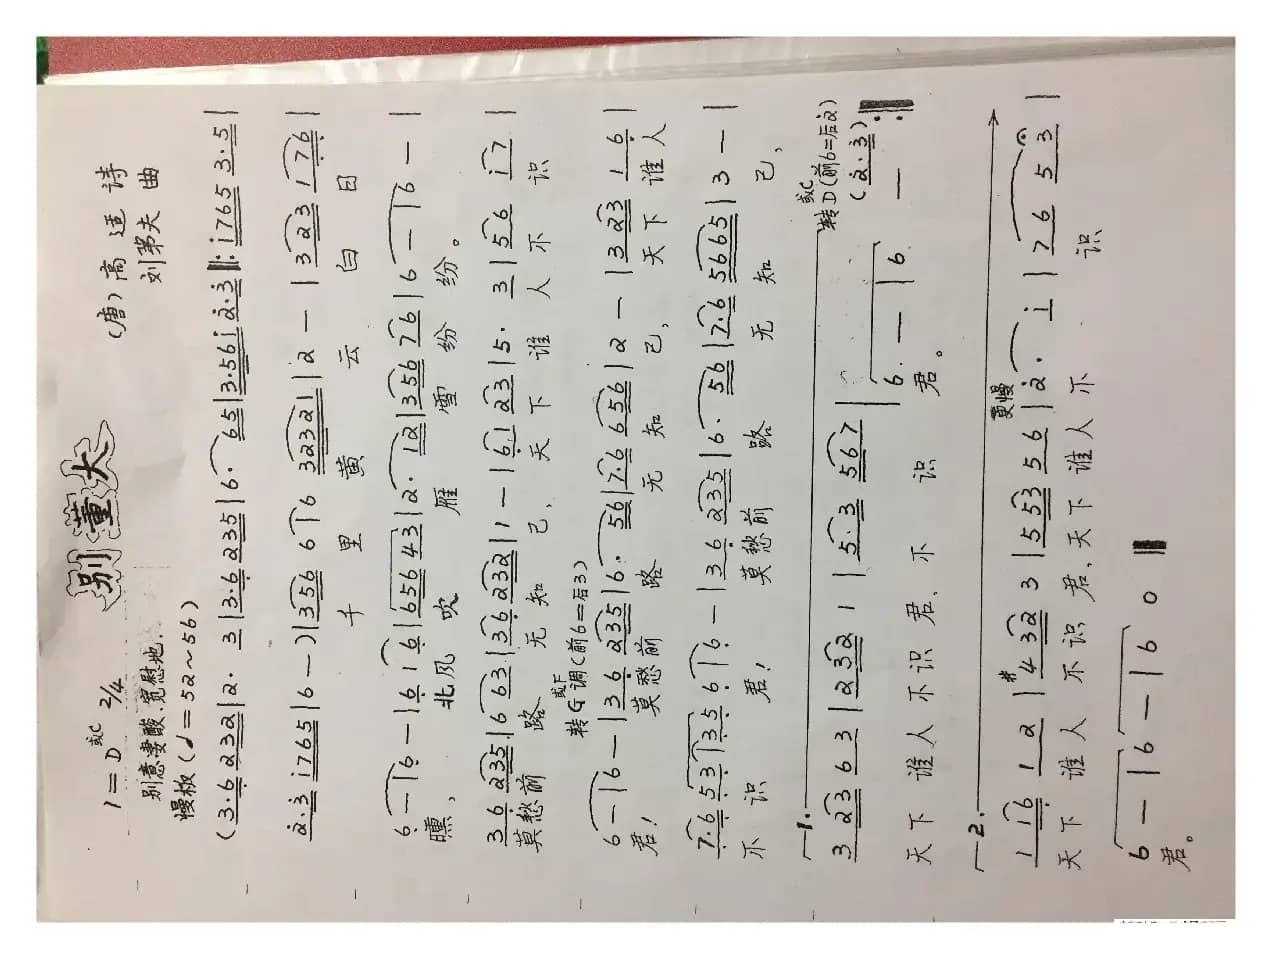 别董大
1=D 或C 2/4
(唐)高适 诗
别意凄酸,宽慰地.
刘第夫 曲
慢板(♩=52~56)
(3·6 2 3 2 | 2· 3 | 3·6 2 3 5 | 6· 6 5 | 3·5 6 i 2·3 ‖: i 7 6 5 3·5 |
2·3 i 7 6 5 | 6 —) | 3 5 6 6 | 6 3 2 3 2 1 | 2 — | 3 2 3 1 7 6 |
千里黄云白日
6 — | 6 — | 6 1 6 | 6 5 6 4 3 | 2· 1 2 | 3 5 6 7 6 | 6 — | 6 — |
曛,北风吹雁雪纷纷。
3 6 2 3 5 | 6 6 3 | 3 6 2 3 2 | 1 — | 6 1 2 3 | 5· 3 | 5 6 i 7 |
莫愁前路无知己,天下谁人不识
转G或F调(前6=后3)
6 — | 6 — | 3 6 2 3 5 | 6· 5 6 | 7·6 6 5 6 | 2 — | 3 2 3 1 6 |
君!莫愁前路无知己,天下谁人
7·6 5 3 | 3 5 6 | 6 — | 3 6 2 3 5 | 6· 5 6 | 7·6 5 6 6 5 | 3 — |
不识君!莫愁前路无知己,
1.
转D或C(前6=后2)
3 2 3 6 3 | 2 3 2 1 | 5·3 5 6 7 | 6 — | 6 — (2·3) :‖
天下谁人不识君,不识君。
2.
更慢
1 1 6 1 2 | #4 3 2 3 | 5 5 3 5 6 | 2· i | 7 6 5 3 |
天下谁人不识君,天下谁人不识
6 — | 6 — | 6 0 ‖
君。